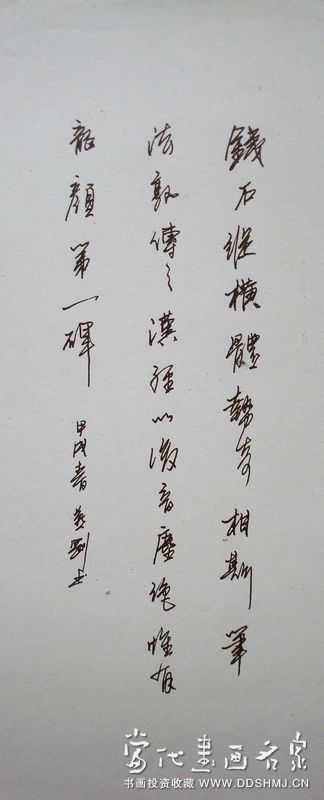 鐵石縱橫體勢奇相斯筆
法孰傳之漢經以後音塵絕惟有
龍顏第一碑
甲戌春書
當代書畫名家
书画投资收藏 WWW.DDSHMJ.CN